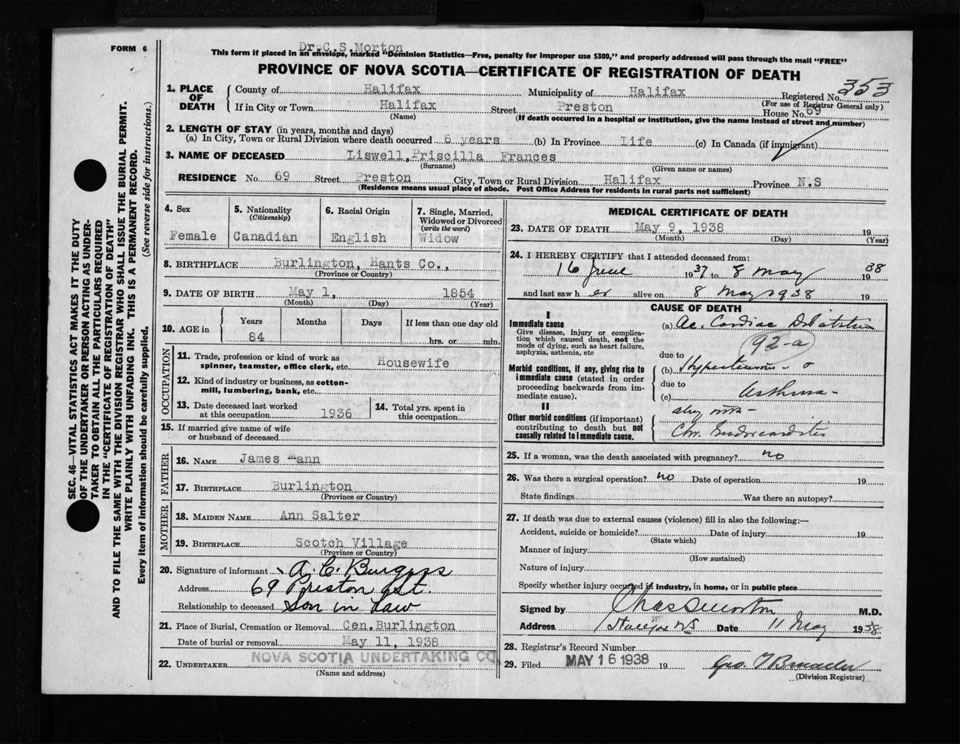 FORM 6
Dr. C.S. Morton
This form if placed in an envelope, marked "Dominion Statistics—Free, penalty for improper use $300," and properly addressed will pass through the mail "FREE"
PROVINCE OF NOVA SCOTIA—CERTIFICATE OF REGISTRATION OF DEATH
353
1. PLACE OF DEATH
County of Halifax Municipality of Halifax Registered No.
(For use of Registrar General only)
If in City or Town Halifax Street Preston House No. 69
(Name) (If death occurred in a hospital or institution, give the name instead of street and number)
2. LENGTH OF STAY (in years, months and days)
(a) In City, Town or Rural Division where death occurred 6 years (b) In Province Life (c) In Canada (if immigrant)
3. NAME OF DECEASED Liswell, Priscilla Frances
(Surname) (Given name or names)
RESIDENCE No. 69 Street Preston City, Town or Rural Division Halifax Province N.S
(Residence means usual place of abode. Post Office Address for residents in rural parts not sufficient)
4. Sex
Female
5. Nationality
(Citizenship)
Canadian
6. Racial Origin
English
7. Single, Married, Widowed or Divorced
(write the word)
Widow
8. BIRTHPLACE Burlington, Hants Co.,
(Province or Country)
9. DATE OF BIRTH May 1, 1854
(Month) (Day) (Year)
10. AGE in
Years Months Days If less than one day old
84 hrs. or min.
OCCUPATION
11. Trade, profession or kind of work as spinner, teamster, office clerk, etc. Housewife
12. Kind of industry or business, as cotton-mill, lumbering, bank, etc.
13. Date deceased last worked at this occupation 1936
14. Total yrs. spent in this occupation
15. If married give name of wife or husband of deceased
FATHER
16. NAME James Mann
17. BIRTHPLACE Burlington
(Province or Country)
MOTHER
18. MAIDEN NAME Ann Salter
19. BIRTHPLACE Scotch Village
(Province or Country)
20. Signature of informant A. C. Burgess
Address 69 Preston st.
Relationship to deceased Son in Law
21. Place of Burial, Cremation or Removal Cem. Burlington
Date of burial or removal May 11, 1938
22. UNDERTAKER NOVA SCOTIA UNDERTAKING CO.
(Name and address)
MEDICAL CERTIFICATE OF DEATH
23. DATE OF DEATH May 9, 1938 19
(Month) (Day) (Year)
24. I HEREBY CERTIFY that I attended deceased from:
16 June 1937 to 8 May 1938
and last saw her alive on 8 May 1938 19
CAUSE OF DEATH
I
Immediate cause
Give disease, injury or complication which caused death, not the mode of dying, such as heart failure, asphyxia, asthenia, etc
(a) Ac. Cardiac Dilatation
(92-a)
due to
Morbid conditions, if any, giving rise to immediate cause (stated in order proceeding backwards from immediate cause).
(b) Hypertension
due to
(c) Asthma
II
Other morbid conditions (if important) contributing to death but not causally related to immediate cause.
Chr. Endocarditis
25. If a woman, was the death associated with pregnancy? no
26. Was there a surgical operation? no Date of operation 19
State findings Was there an autopsy?
27. If death was due to external causes (violence) fill in also the following:—
Accident, suicide or homicide? Date of injury 19
(State which)
Manner of injury
(How sustained)
Nature of injury
Specify whether injury occurred in industry, in home, or in public place
Signed by Chas S Morton M.D.
Address Halifax NS Date 11 May 1938
28. Registrar's Record Number
29. Filed MAY 16 1938 19
(Division Registrar)
SEC. 46—VITAL STATISTICS ACT MAKES IT THE DUTY
OF THE UNDERTAKER OR PERSON ACTING AS UNDER-
TAKER TO OBTAIN ALL THE PARTICULARS REQUIRED
IN THE "CERTIFICATE OF REGISTRATION OF DEATH"
AND TO FILE THE SAME WITH THE DIVISION REGISTRAR WHO SHALL ISSUE THE BURIAL PERMIT.
WRITE PLAINLY WITH UNFADING INK. THIS IS A PERMANENT RECORD.
Every item of information should be carefully supplied. (See reverse side for instructions.)